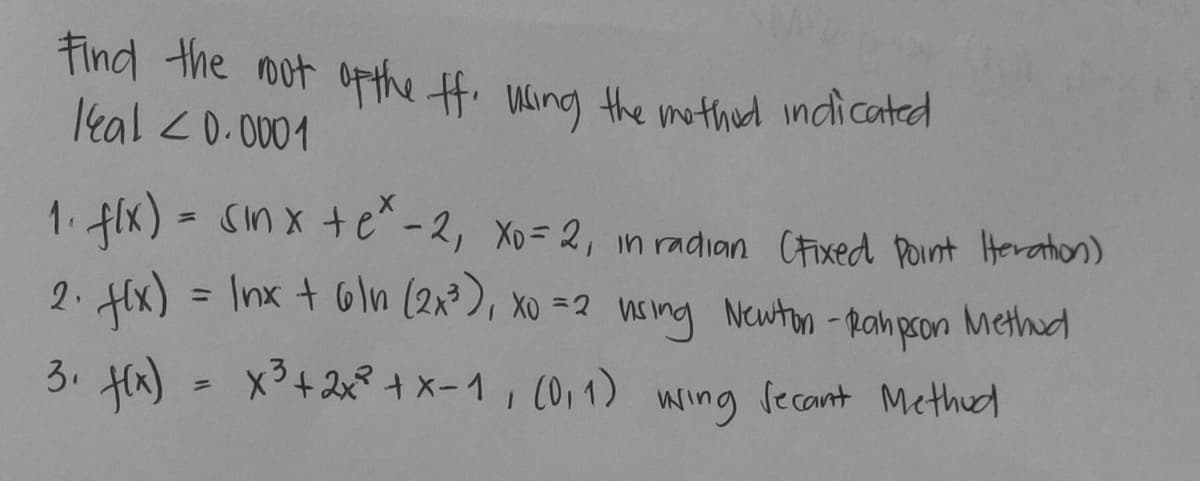 Find the root of the ff. using the method indicated
|εa| < 0.0001
1. f(x) = sin x + e^x - 2, x0 = 2, in radian (Fixed Point Iteration)
2. f(x) = lnx + 6ln (2x³), x0 = 2 using Newton - Rahpson Method
3. f(x) = x³ + 2x² + x - 1, (0, 1) using Secant Method